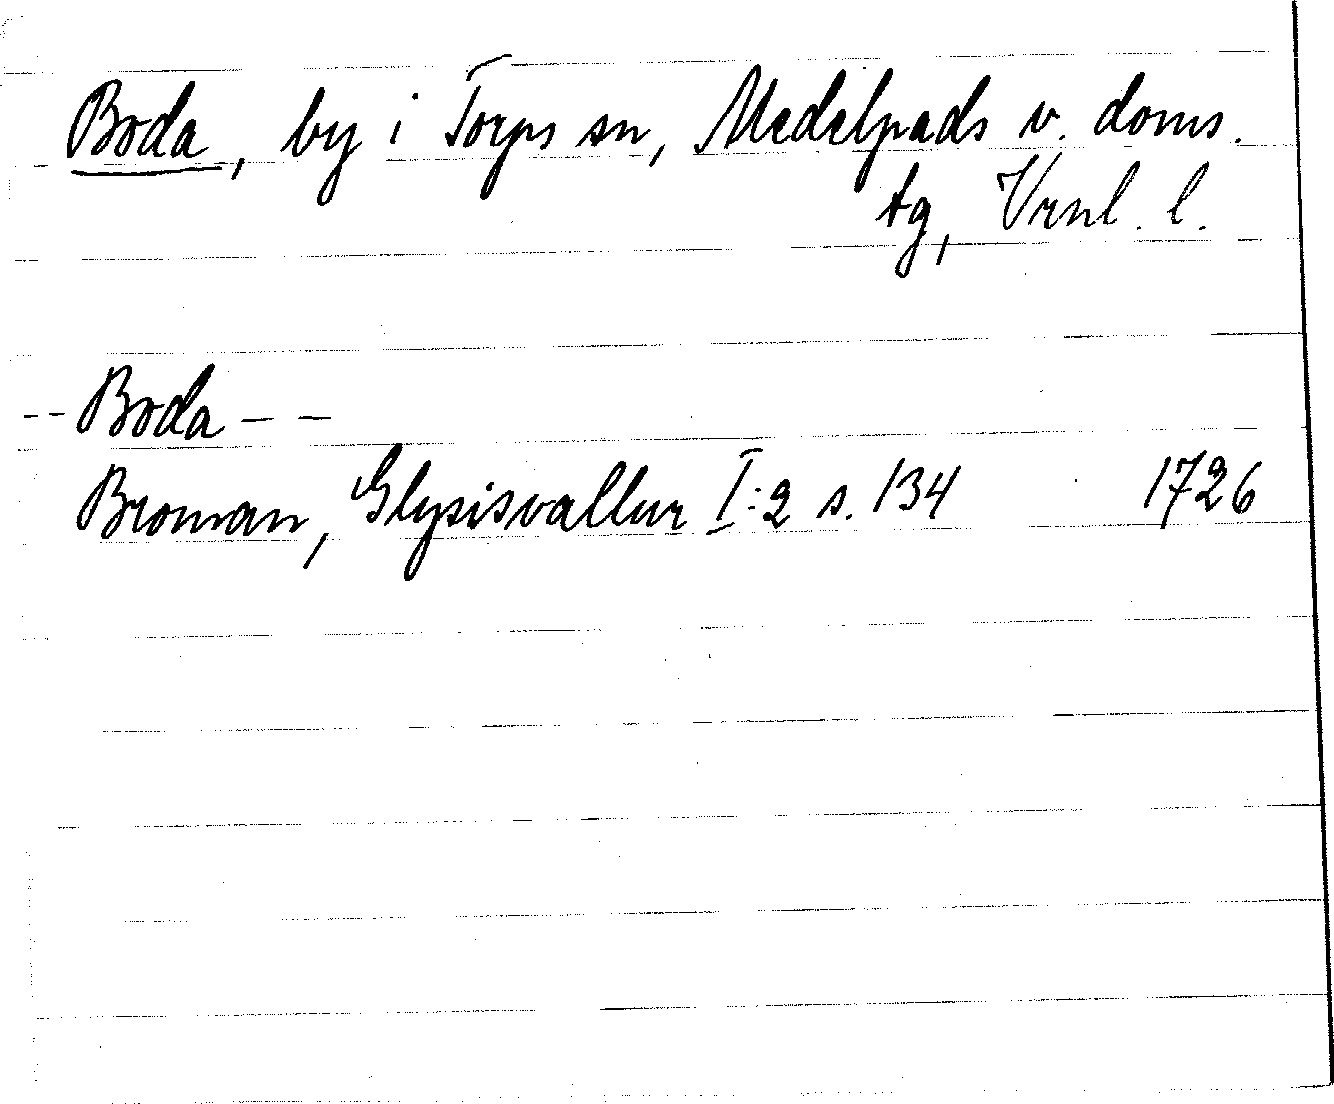 Boda, by i Torps sn, Medelpads v. doms.
tg, Vrnl. l.
-- Boda --
Broman, Glysisvallur I:2 s. 134 1726